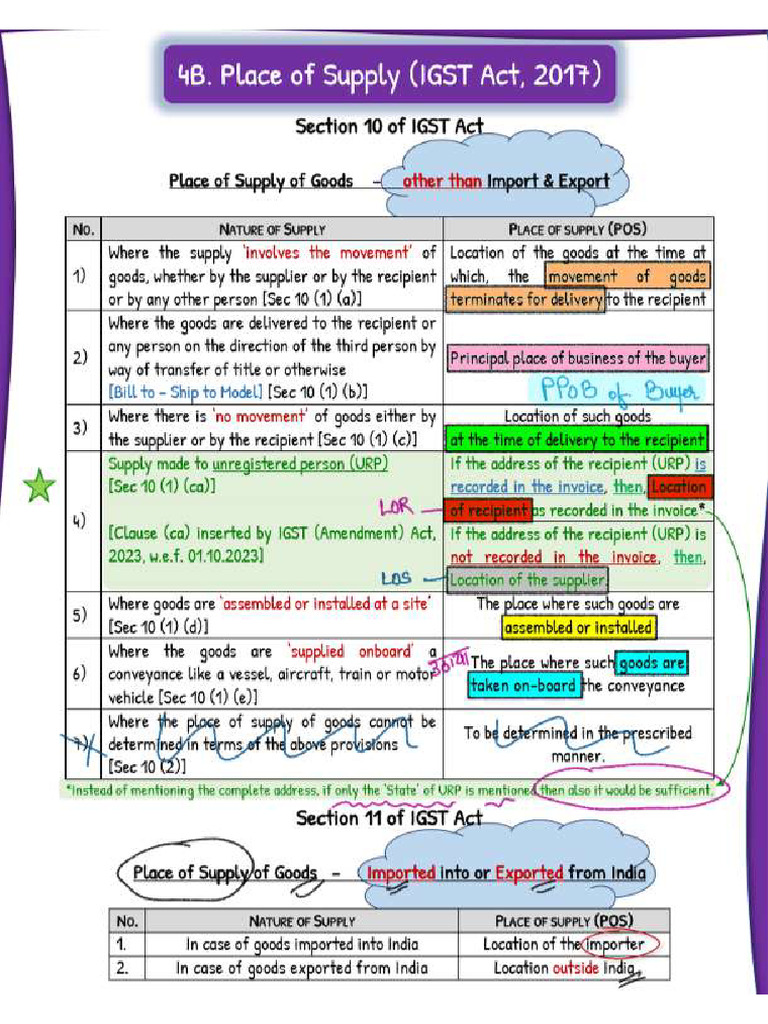 4B. Place of Supply (IGST Act, 2017)
Section 10 of IGST Act
Place of Supply of Goods – other than Import & Export
No. NATURE OF SUPPLY PLACE OF SUPPLY (POS)
1) Where the supply 'involves the movement' of goods, whether by the supplier or by the recipient or by any other person [Sec 10 (1) (a)]
Location of the goods at the time at which, the movement of goods terminates for delivery to the recipient
2) Where the goods are delivered to the recipient or any person on the direction of the third person by way of transfer of title or otherwise
[Bill to – Ship to Model] [Sec 10 (1) (b)]
Principal place of business of the buyer
PPOB of Buyer
3) Where there is 'no movement' of goods either by the supplier or by the recipient [Sec 10 (1) (c)]
Location of such goods
at the time of delivery to the recipient
4) Supply made to unregistered person (URP)
[Sec 10 (1) (ca)]
[Clause (ca) inserted by IGST (Amendment) Act, 2023, w.e.f. 01.10.2023]
If the address of the recipient (URP) is recorded in the invoice, then, Location of recipient as recorded in the invoice*
LOR
If the address of the recipient (URP) is not recorded in the invoice, then, Location of the supplier.
LOS
5) Where goods are 'assembled or installed at a site' [Sec 10 (1) (d)]
The place where such goods are assembled or installed
6) Where the goods are 'supplied onboard' a conveyance like a vessel, aircraft, train or motor vehicle [Sec 10 (1) (e)]
The place where such goods are taken on-board the conveyance
7) Where the place of supply of goods cannot be determined in terms of the above provisions
[Sec 10 (2)]
To be determined in the prescribed manner.
*Instead of mentioning the complete address, if only the 'State' of URP is mentioned then also it would be sufficient.
Section 11 of IGST Act
Place of Supply of Goods – Imported into or Exported from India
No. NATURE OF SUPPLY PLACE OF SUPPLY (POS)
1. In case of goods imported into India Location of the importer
2. In case of goods exported from India Location outside India